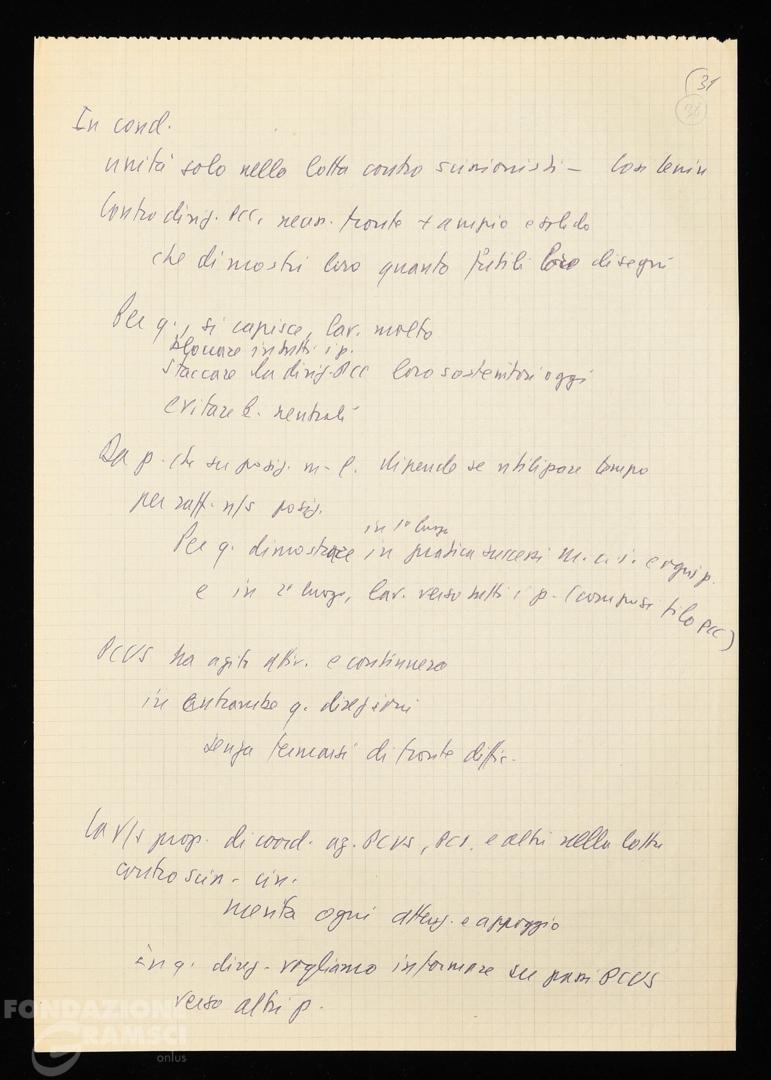 31
In cond.
unità solo nella lotta contro scissionisti – Con Lenin
Contro dirig. PCC, necess. fronte + ampio e solido
che dimostri loro quanto futili loro disegni
Per q., si capisce, lav. molto
bloccare in tutti i p.
staccare da dirig. PCC loro sostenitori oggi
evitare b. neutrali
Da p. che su posiz. m-l. dipende se utilizzare tempo
per raff. n/s posiz.
in 1° luogo
Per q. dimostrare in pratica successi m.c.i. e ogni p.
e in 2° luogo, lav. verso tutti i p. (compresi filo PCC)
PCUS ha agito attiv. e continuerà
in entrambe q. direzioni
senza fermarsi di fronte diffic.
La v/s prop. di coord. az. PCUS, PCI. e altri nella lotta
contro sciss. cin.
merita ogni attenz. e appoggio
In q. direz. vogliamo informare su passi PCUS
verso altri p.
FONDAZIONE
GRAMSCI
onlus